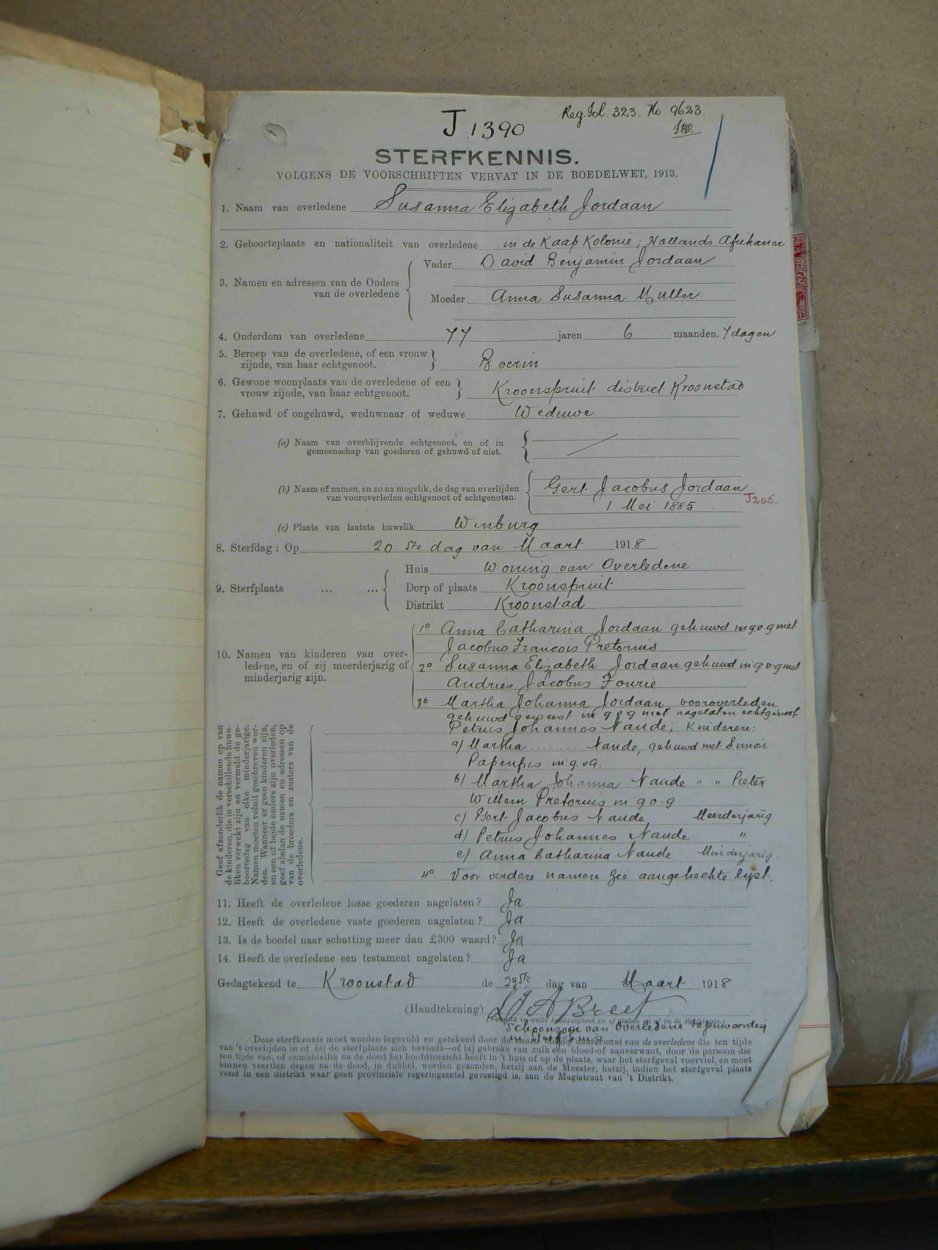 Reg. fol. 323. No 9623.
J 1390
STERFKENNIS.
VOLGENS DE VOORSCHRIFTEN VERVAT IN DE BOEDELWET, 1913.
1. Naam van overledene Susanna Elizabeth Jordaan
2. Geboorteplaats en nationaliteit van overledene in de Kaap Kolonie; Hollands Afrikaner
3. Namen en adressen van de Ouders van de overledene
Vader David Benjamin Jordaan
Moeder Anna Susanna Muller
4. Ouderdom van overledene 77 jaren 6 maanden. 7 dagen
5. Beroep van de overledene, of een vrouw
zijnde, van haar echtgenoot. Boerin
6. Gewone woonplaats van de overledene of een
vrouw zijnde, van haar echtgenoot. Kroonspruit district Kroonstad
7. Gehuwd of ongehuwd, weduwnaar of weduwe Weduwe
(a) Naam van overblijvende echtgenoot, en of in
gemeenschap van goederen of gehuwd of niet.
(b) Naam of namen, en zo na mogelik, de dag van overlijden
van vooroverleden echtgenoot of echtgenoten.
Gert Jacobus Jordaan
1 Mei 1885
J245.
(c) Plaats van laatste huwelik Winburg
8. Sterfdag: Op 20 ste dag van Maart 1918
9. Sterfplaats ... ...
Huis Woning van Overledene
Dorp of plaats Kroonspruit
Distrikt Kroonstad
10. Namen van kinderen van over-
ledene, en of zij meerderjarig of
minderjarig zijn.
1o Anna Catharina Jordaan gehuwd in g.o.g met
Jacobus Francois Pretorius
2o Susanna Elizabeth Jordaan gehuwd in g.o.g met
Andries Jacobus Fourie
3o Martha Johanna Jordaan, vooroverleden
gehuwd geweest in g.o.g met nagelaten echtgenoot
Petrus Johannes Naude, Kinderen:
a) Martha ........ Naude, gehuwd met
Papenfus in g.o.g.
b) Martha Johanna Naude " " Pieter
Willem Pretorius in g.o.g
c) Gert Jacobus Naude Meerderjarig
d) Petrus Johannes Naude "
e) Anna Catharina Naude Minderjarig.
4o. Voor verdere namen zie aangehechte lijst.
Geef afzonderlik de namen op van
de kinderen, die in verschillende huwe-
liken verwekt zijn en vermeld de ge-
boortedag van elke minderjarige.
Namen moeten voluit geschreven wor-
den. Wanneer er geen kinderen zijn,
en een of beide ouders zijn overleden,
geef alsdan de namen en adressen op
van de broeders en zusters van de
overledene.
11. Heeft de overledene losse goederen nagelaten? Ja
12. Heeft de overledene vaste goederen nagelaten? Ja
13. Is de boedel naar schatting meer dan £300 waard? Ja
14. Heeft de overledene een testament nagelaten? Ja
Gedagtekend te Kroonstad de 29ste dag van Maart 1918
(Handtekening) Breet
Schoonzoon van Overledene tegenwoordig
Deze sterfkennis moet worden ingevuld en getekend door de naaste van de overledene die ten tijde
van 't overlijden in of bij de sterfplaats zich bevindt—of bij gebreke van zulk een bloed-of aanverwant, door de persoon die
ten tijde van, of onmiddellik na de dood het hoofdtoezicht heeft in 't huis of op de plaats, waar het sterfgeval voorviel, en moet
binnen veertien dagen na de dood, in dubbel, worden gezonden, hetzij aan de Meester, hetzij, indien het sterfgeval plaats
vond in een distrikt waar geen provinciale regeringszetel gevestigd is, aan de Magistraat van 't Distrikt.